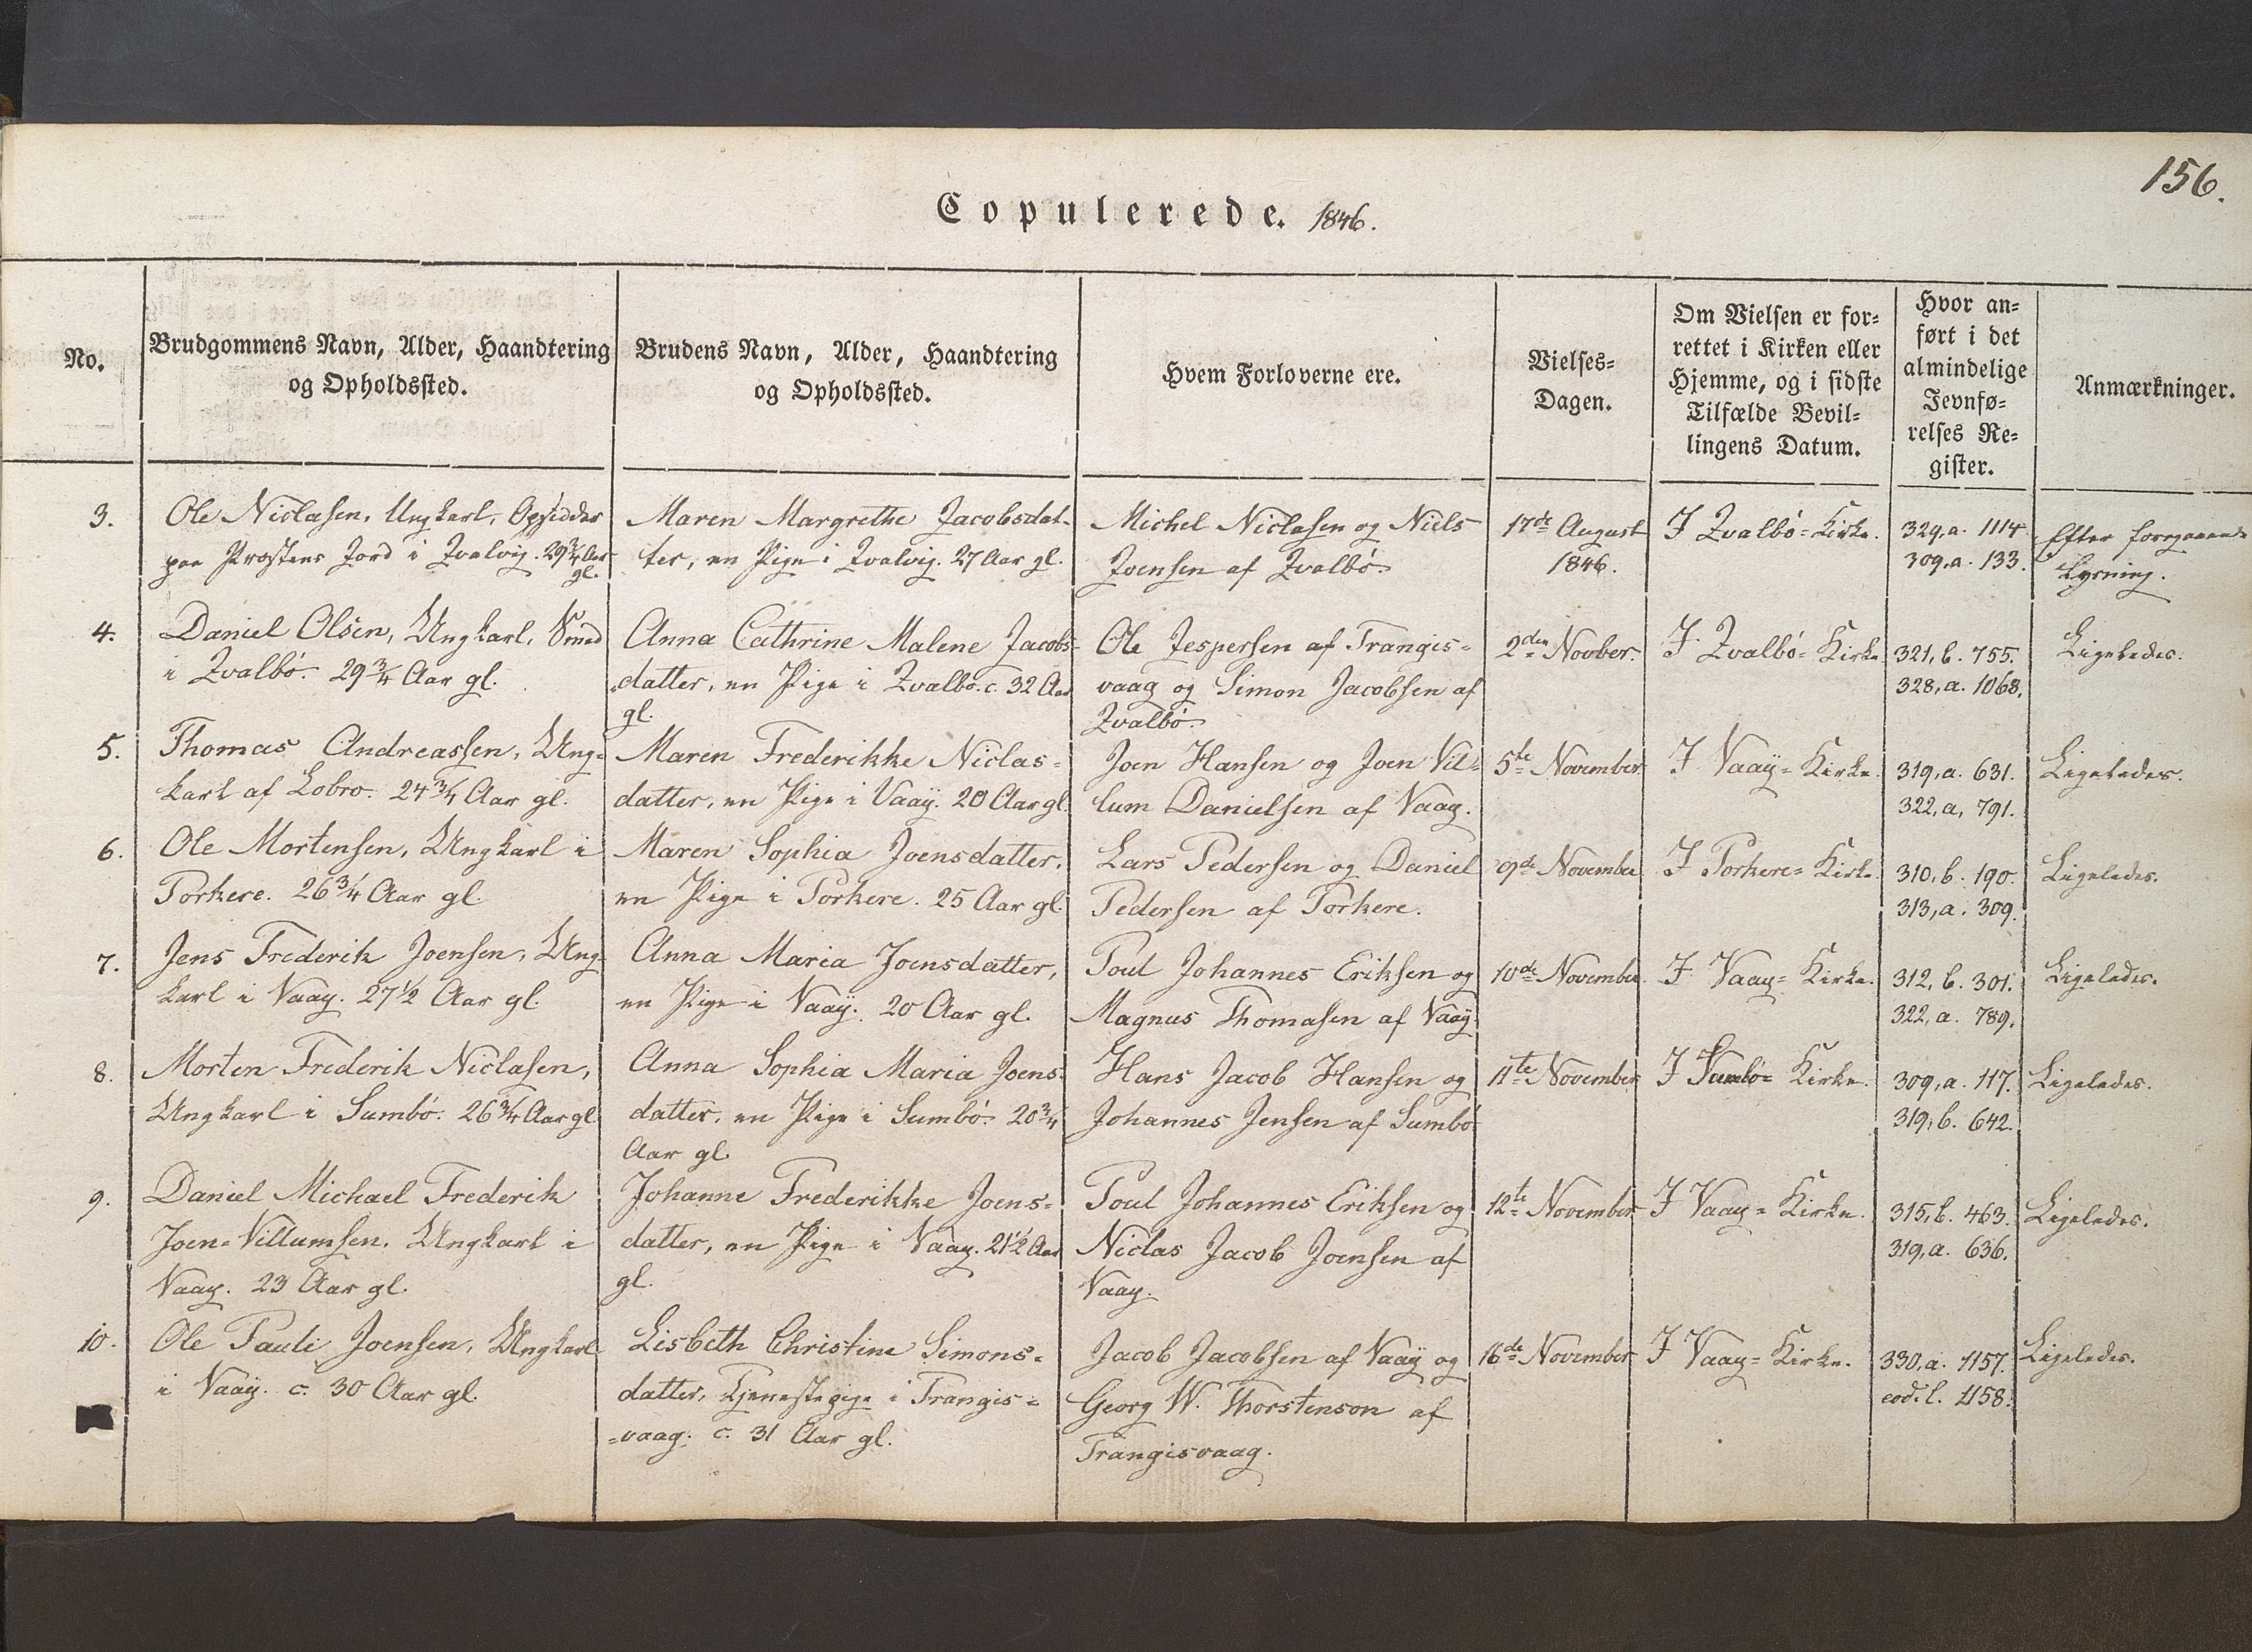 156.
Copulerede. 1846.
No.
Brudgommens Navn, Alder, Haandtering
og Opholdssted.
Brudens Navn, Alder, Haandtering
og Opholdssted.
Hvem Forloverne ere.
Vielses-
Dagen.
Om Vielsen er for-
rettet i Kirken eller
Hjemme, og i sidste
Tilfælde Bevil-
lingens Datum.
Hvor an-
ført i det
almindelige
Jevnfø-
relses Re-
gister.
Anmærkninger.
3.
Ole Niclasen, Ungkarl, Opsidder
paa Præstens Jord i Qvalvig. 29 3/4 Aar
gl.
Maren Margrethe Jacobsdat-
ter, en Pige i Qvalvig. 27 Aar gl.
Michel Niclasen og Niels
Joensen af Qvalbö.
17de August
1846.
I Qvalbö-Kirke.
329, a. 1114
309, a. 133.
Efter foregaaende
Lysning.
4.
Daniel Olsen, Ungkarl, Smed
i Qvalbö. 29 3/4 Aar gl.
Anna Cathrine Malene Jacobs-
datter, en Pige i Qvalbö. c. 32 Aar
gl.
Ole Jespersen af Trangis-
vaag og Simon Jacobsen af
Qvalbö.
2den Novber.
I Qvalbö-Kirke
321, b. 755.
328, a. 1068.
Ligeledes.
5.
Thomas Andreassen, Ung-
karl af Lobro. 24 3/4 Aar gl.
Maren Frederikke Niclas-
datter, en Pige i Vaag. 20 Aar gl.
Joen Hansen og Joen Vil-
lum Danielsen af Vaag.
5te November
I Vaag-Kirke.
319, a. 631.
322, a, 791.
Ligeledes.
6.
Ole Mortensen, Ungkarl i
Porkere. 26 3/4 Aar gl.
Maren Sophia Joensdatter,
en Pige i Porkere. 25 Aar gl.
Lars Pedersen og Daniel
Pedersen af Porkere.
9de November
I Porkere-Kirke
310, b. 190.
313, a. 309.
Ligeledes.
7.
Jens Frederik Joensen, Ung-
karl i Vaag. 27 1/2 Aar gl.
Anna Maria Joensdatter,
en Pige i Vaag. 20 Aar gl.
Poul Johannes Eriksen og
Magnus Thomasen af Vaag.
10de November.
I Vaag-Kirke.
312, b. 301.
322, a. 789.
Ligeledes.
8.
Morten Frederik Niclasen,
Ungkarl i Sumbö. 26 3/4 Aar gl.
Anna Sophia Maria Joens-
datter, en Pige i Sumbö. 20 3/4
Aar gl.
Hans Jacob Hansen og
Johannes Jensen af Sumbö
11te November
I Sumbö-Kirke.
309, a. 117.
319, b. 642.
Ligeledes.
9.
Daniel Michael Frederik
Joen-Villumsen, Ungkarl i
Vaag. 23 Aar gl.
Johanne Frederikke Joens-
datter, en Pige i Vaag. 21 1/2 Aar
gl.
Poul Johannes Eriksen og
Niclas Jacob Joensen af
Vaag.
12te November
I Vaag-Kirke.
315, b. 463.
319, a. 636.
Ligeledes.
10.
Ole Pauli Joensen, Ungkarl
i Vaag. c. 30 Aar gl.
Lisbeth Christine Simons-
datter, Tjenestepige i Trangis-
-vaag. c. 31 Aar gl.
Jacob Jacobsen af Vaag og
Georg W. Thorstenson af
Trangisvaag.
16de November
I Vaag-Kirke.
330, a. 1157.
eod. l. 1158.
Ligeledes.